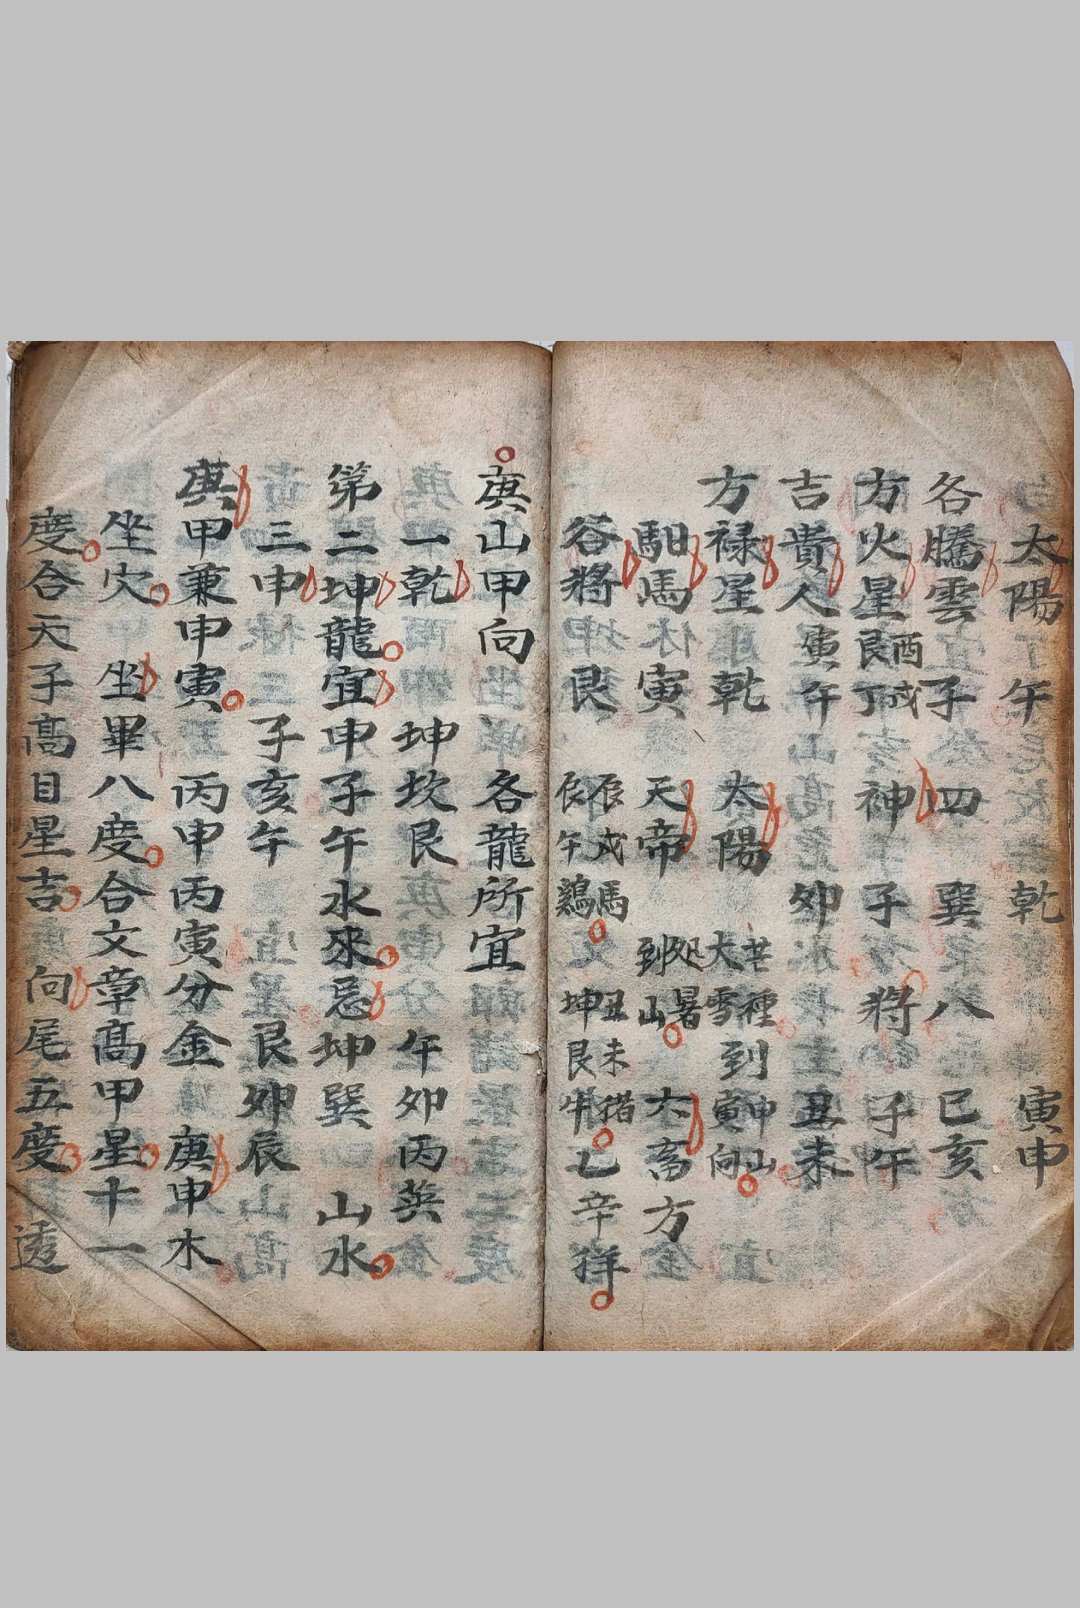 太陽 午 乾 寅申
各騰雲子 四 巽 八 巳亥
方火星艮丁 酉戌 神子 將 子午
吉貴人寅午 卯 丑未
方禄星 乾 太陽 大雪 芒種 到 寅向 申山
馹馬 寅 天帝 到山 処暑 六畜方
谷將 艮 辰午鷄 辰戌馬 坤艮牛 丑未猪 乙辛祥
庚山甲向 各龍所宜
一乾 坤坎艮 午卯丙
第二坤龍宜申子午水來忌坤巽 山水
三申 子亥午 艮卯辰
庚甲兼申寅 丙申丙寅分金 庚申木
坐穴 坐畢八度合文章高甲星十一
度合天子高目星吉 向尾五度 透